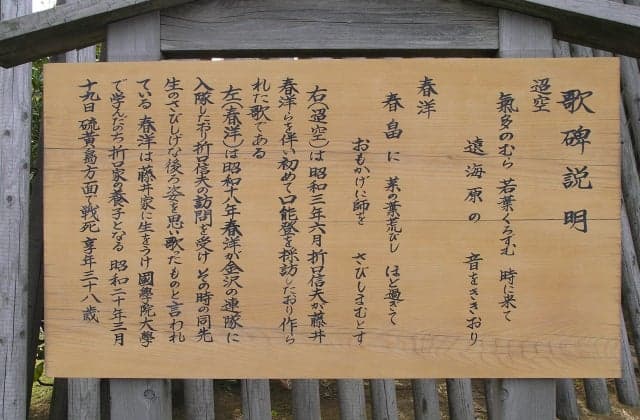 歌碑説明
迢空
氣多のむら 若葉くろずむ 時に来て
遠海原の 音をききおり
春洋
春畠に 菜の葉荒びし ほど過ぎて
おもかげに師を さびしまむとす
右(迢空)は昭和三年六月折口信夫が藤井
春洋らを伴い初めて口能登を採訪したおり作ら
れた歌である
左(春洋)は昭和八年春洋が金沢の連隊に
入隊したおり折口信夫の訪問を受け その時の同先
生のさびしげな後ろ姿を思い歌たものと言われ
ている 春洋は藤井家に生をうけ 國學院大學
で学んだのち折口家の養子となる 昭和二十年三月
十九日 硫黄島方面で戦死 享年三十八歳